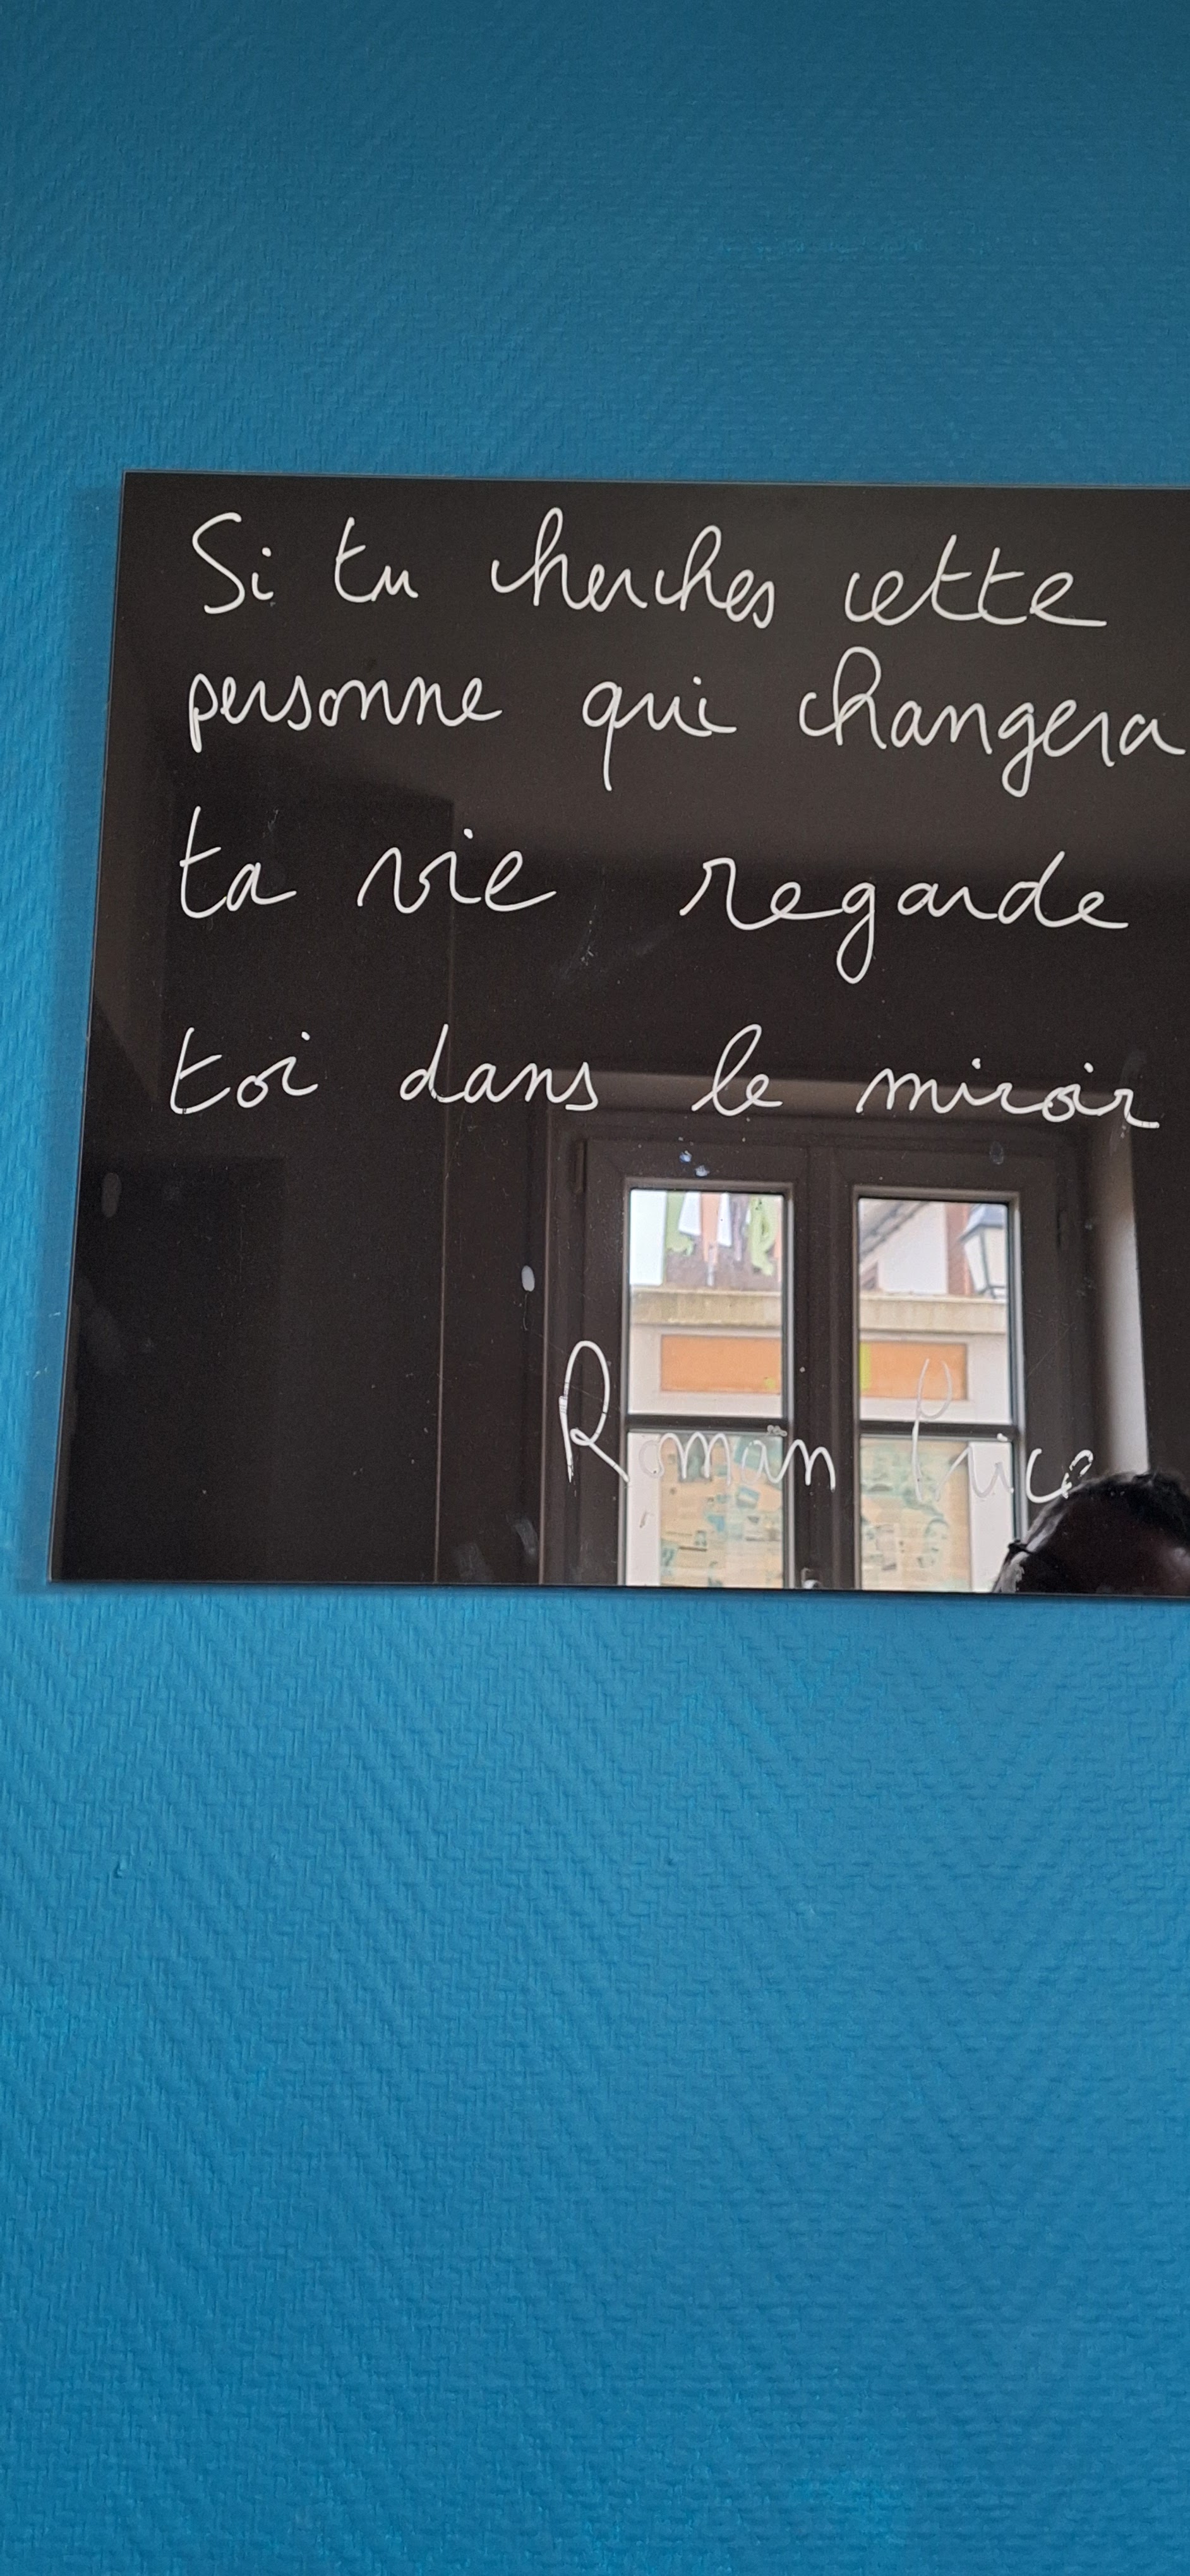 Si tu cherches cette
personne qui changera
ta vie regarde
toi dans le miroir
Roman Price